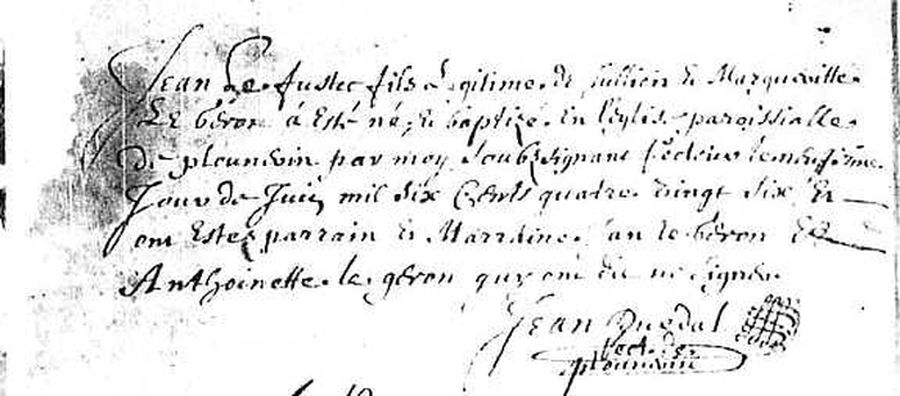 Jean Le fustec fils Legitime de Jullien Et Margueritte
Le géron à Esté né, Et baptizé En l'eglise paroissialle
de plounevin par moy Soubzsignant Recteur le neufieme
Jour de Juin mil Six Cents quatre vingt Six Et
ont Estez parrain Et Marraine Jan le géron Et
Anthoinette le géron quy ont dit ne Signer
Jean
Rect. de
plounevin